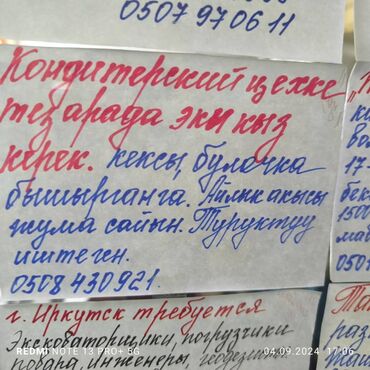 0507 97 06 11
Кондитерский цехке
тез арада эки кыз
керек. кексы, булочка
бышырганга. Айлык акысы
жума сайын. Туруктуу
иштеген.
0508 430921.
г. Иркутск требуется
Экскаваторщики, погрузчики
повара, инженеры, геодезисты.
17-
1500
REDMI NOTE 13 PRO+ 5G
04.09.2024 17:06